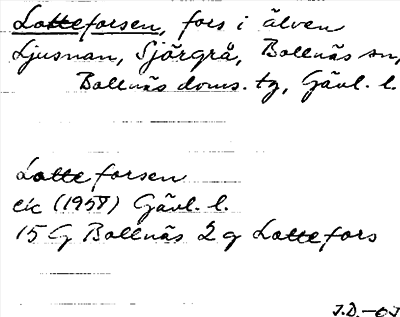 Lotteforsen, fors i älven
Ljusnan, Sjörgrå, Bollnäs sn,
Bollnäs doms. tg, Gävl. l.
Lotteforsen
ek (1958) Gävl. l.
15 G Bollnäs 2 g Lottefors
J.D.-OJ